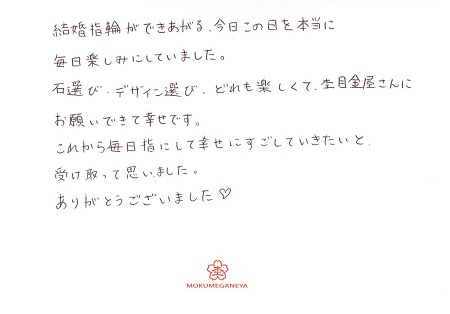 結婚指輪ができあがる、今日この日を本当に
毎日楽しみにしていました。
石選び、デザイン選び、どれも楽しくて、杢目金屋さんに
お願いできて幸せです。
これから毎日指にして幸せにすごしていきたいと、
受け取って思いました。
ありがとうございました♡
杢
MOKUMEGANEYA